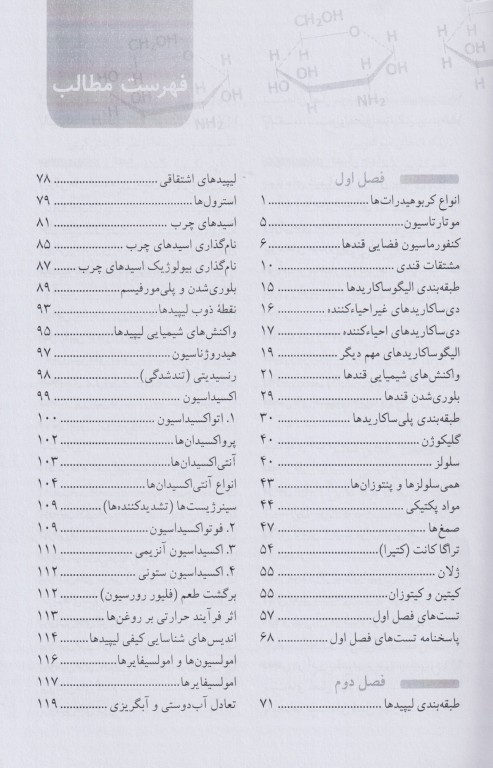 فهرست مطالب
فصل اول
انواع کربوهیدرات‌ها ۱
موتارتاسیون ۵
کنفورماسیون فضایی قندها ۶
مشتقات قندی ۱۰
طبقه‌بندی الیگوساکاریدها ۱۵
دی‌ساکاریدهای غیراحیاءکننده ۱۶
دی‌ساکاریدهای احیاءکننده ۱۷
الیگوساکاریدهای مهم دیگر ۱۹
واکنش‌های شیمیایی قندها ۲۱
بلوری‌شدن قندها ۲۹
طبقه‌بندی پلی‌ساکاریدها ۳۰
گلیکوژن ۴۰
سلولز ۴۰
همی‌سلولزها و پنتوزان‌ها ۴۳
مواد پکتیکی ۴۴
صمغ‌ها ۴۷
تراگاکانت (کتیرا) ۵۴
ژلان ۵۵
کیتین و کیتوزان ۵۵
تست‌های فصل اول ۵۷
پاسخنامه تست‌های فصل اول ۶۸
فصل دوم
طبقه‌بندی لیپیدها ۷۱
لیپیدهای اشتقاقی ۷۸
استرول‌ها ۷۹
اسیدهای چرب ۸۱
نام‌گذاری اسیدهای چرب ۸۵
نام‌گذاری بیولوژیک اسیدهای چرب ۸۷
بلوری‌شدن و پلی‌مورفیسم ۸۹
نقطهٔ ذوب لیپیدها ۹۳
واکنش‌های شیمیایی لیپیدها ۹۵
هیدروژناسیون ۹۷
رنسیدیتی (تندشدگی) ۹۸
اکسیداسیون ۹۹
۱. اتواکسیداسیون ۱۰۰
پرواکسیدان‌ها ۱۰۲
آنتی‌اکسیدان‌ها ۱۰۳
انواع آنتی‌اکسیدان‌ها ۱۰۴
سینرژیست‌ها (تشدیدکننده‌ها) ۱۰۹
۲. فوتواکسیداسیون ۱۰۹
۳. اکسیداسیون آنزیمی ۱۱۱
۴. اکسیداسیون ستونی ۱۱۲
برگشت طعم (فلیور رورسیون) ۱۱۲
اثر فرآیند حرارتی بر روغن‌ها ۱۱۳
اندیس‌های شناسایی کیفی لیپیدها ۱۱۴
امولسیون‌ها و امولسیفایرها ۱۱۶
امولسیفایرها ۱۱۷
تعادل آب‌دوستی و آبگریزی ۱۱۹